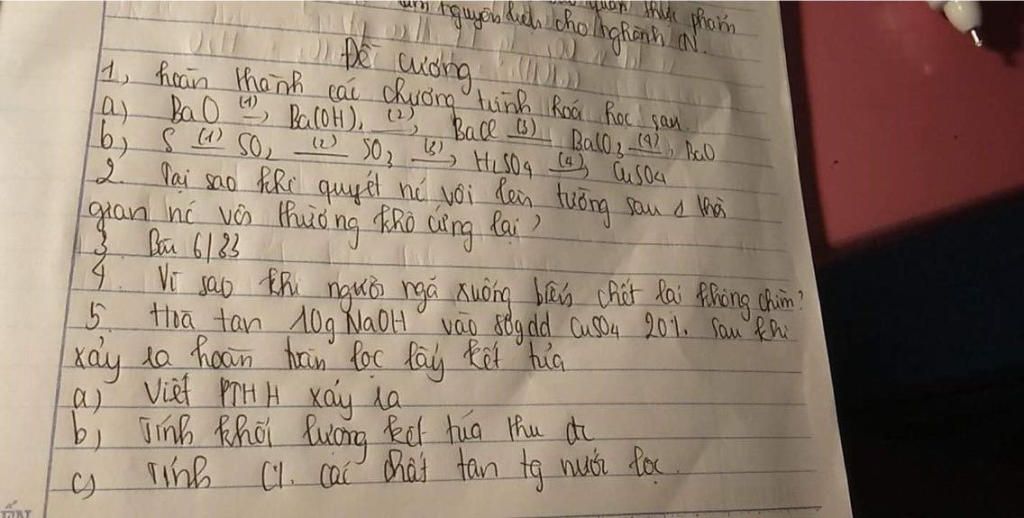 nguyên liệu cho nghành CN.
Đề cương
1, hoàn thành các chương trình hoá học sau
a) BaO (1)→ Ba(OH)2 (2)→ BaCl (3)→ BaCO3 (4)→ BaO
b) S (1) SO2 (2) SO3 (3)→ H2SO4 (4)→ CuSO4
2. Tại sao khi quyét nc vôi lên tường sau 1 thời
gian nc vôi thường khô cứng lại?
3. Bài 6/33
4. Vì sao khi người ngã xuống biển chết lại không chìm?
5. Hoà tan 10g NaOH vào 80g dd CuSO4 20%. Sau khi
xảy ra hoàn toàn lọc lấy kết tủa
a) Viết PTHH xảy ra
b) Tính khối lượng kết tủa thu đc
c) Tính C% các chất tan tg nước lọc.